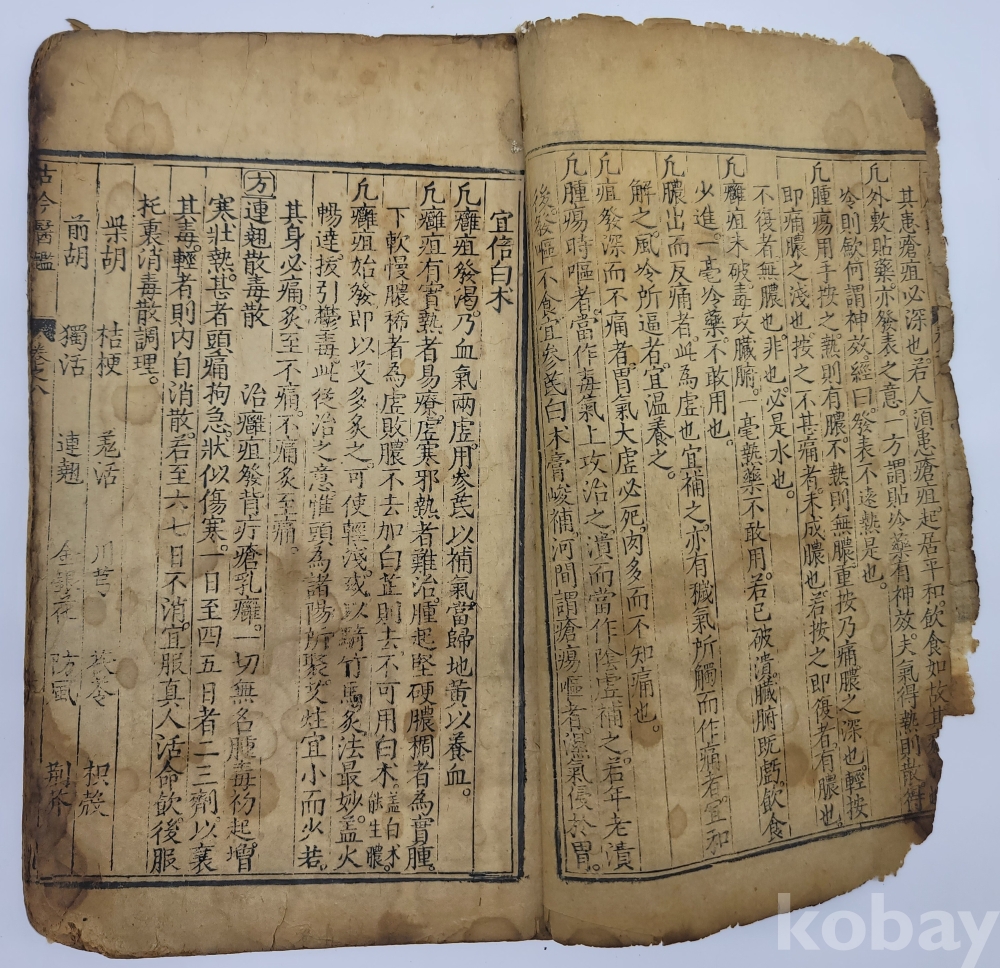 其患瘡疽必深也若人須患瘡疽起居平和飲食如故其
凡外敷貼藥亦發表之意一方謂貼冷藥有神效夫氣得熱則散得
冷則歛何謂神效經曰發表不遠熱是也
凡腫瘍用手按之熱則有膿不熱則無膿重按乃痛膿之深也輕按
即痛膿之淺也按之不甚痛者未成膿也若按之即復者有膿也
不復者無膿也非也必是水也
凡癰疽未破毒攻臟腑一毫熱藥不敢用若已破潰臟腑既虧飲食
少進一毫冷藥不敢用也
凡膿出而反痛者此為虛也宜補之亦有穢氣所觸而作痛者宜和
解之風冷所逼者宜溫養之
凡疽發深而不痛者胃氣大虛必死肉多而不知痛也
凡腫瘍時嘔者當作毒氣上攻治之潰而當作陰虛補之若年老潰
後發嘔不食宜參芪白术膏峻補河間謂瘡瘍嘔者濕氣侵於胃
宜倍白术
凡癰疽發渴乃血氣兩虛用參芪以補氣當歸地黃以養血
凡癰疽有實熱者易療虛寒邪熱者難治腫起堅硬膿稠者為實腫
下軟慢膿稀者為虛敗膿不去加白芷則去不可用白术蓋白术能生膿
凡癰疽始發即以艾多灸之可使輕淺或以騎竹馬灸法最妙蓋火
暢達拔引鬱毒此從治之意惟頭為諸陽所聚艾炷宜小而少若
其身必痛灸至不痛不痛灸至痛
方連翹散毒散 治癰疽發背疔瘡乳癰一切無名腫毒初起增
寒壯熱甚者頭痛拘急狀似傷寒一日至四五日者二三劑以衰
其毒輕者則內自消散若至六七日不消宜服真人活命飲後服
托裏消毒散調理
柴胡 桔梗 羌活 川芎 茯苓 枳殼
前胡 獨活 連翹 金銀花 防風 荆芥
古今醫鑑 卷之八
kobay